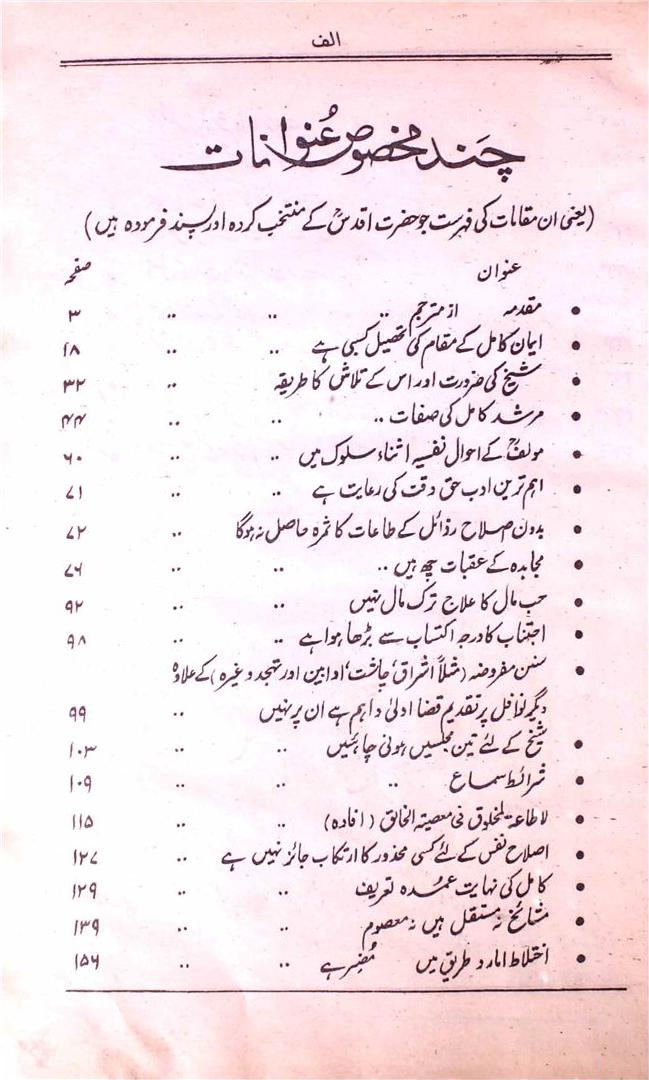 الف
چند مخصوص عنوانات
(یعنی ان مقامات کی فہرست جو حضرت اقدسؒ کے منتخب کردہ اور پسند فرمودہ ہیں)
عنوان صفحہ
• مقدمہ از مترجم .. .. .. ۳
• ایمان کامل کے مقام کی تحصیل کسبی ہے .. .. ۱۸
• شیخ کی ضرورت اور اس کے تلاش کا طریقہ .. ۳۲
• مرشد کامل کی صفات .. .. .. ۴۴
• مولفؒ کے احوال نفسیہ اثناء سلوک میں .. .. ۶۰
• اہم ترین ادب حق وقت کی رعایت ہے .. .. ۷۱
• بدون اصلاح رذائل کے طاعات کا ثمرہ حاصل نہ ہوگا .. ۷۲
• مجاہدہ کے عقبات چھ ہیں .. .. .. ۷۶
• حب مال کا علاج ترک مال نہیں .. .. ۹۲
• اجتناب کا درجہ اکتساب سے بڑھا ہوا ہے .. .. ۹۸
• سنن مفروضہ (مثلاً اشراق، چاشت، اوابین اور تہجد وغیرہ) کے علاوہ
دیگر نوافل پر تقدیم قضا اولیٰ و اہم ہے ان پر نہیں .. ۹۹
• شیخ کے لئے تین مجلسیں ہونی چاہئیں .. .. ۱۰۳
• شرائط سماع .. .. .. ۱۰۹
• لاطاعۃ لمخلوق فی معصیتہ الخالق (افادہ) .. .. ۱۱۵
• اصلاح نفس کے لئے کسی محذور کا ارتکاب جائز نہیں ہے .. ۱۲۷
• کامل کی نہایت عمدہ تعریف .. .. ۱۲۹
• مشائخ نہ مستقل ہیں نہ معصوم .. .. ۱۳۹
• اختلاط امارد طریق میں مُضِر ہے .. .. ۱۵۶